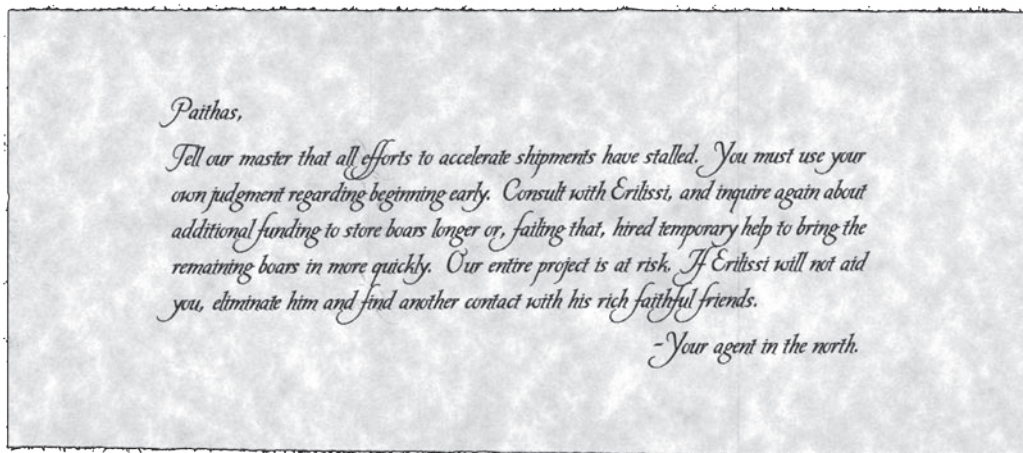 Paithas,
Tell our master that all efforts to accelerate shipments have stalled. You must use your
own judgment regarding beginning early. Consult with Erilissi, and inquire again about
additional funding to store boars longer or, failing that, hired temporary help to bring the
remaining boars in more quickly. Our entire project is at risk. If Erilissi will not aid
you, eliminate him and find another contact with his rich faithful friends.
-Your agent in the north.